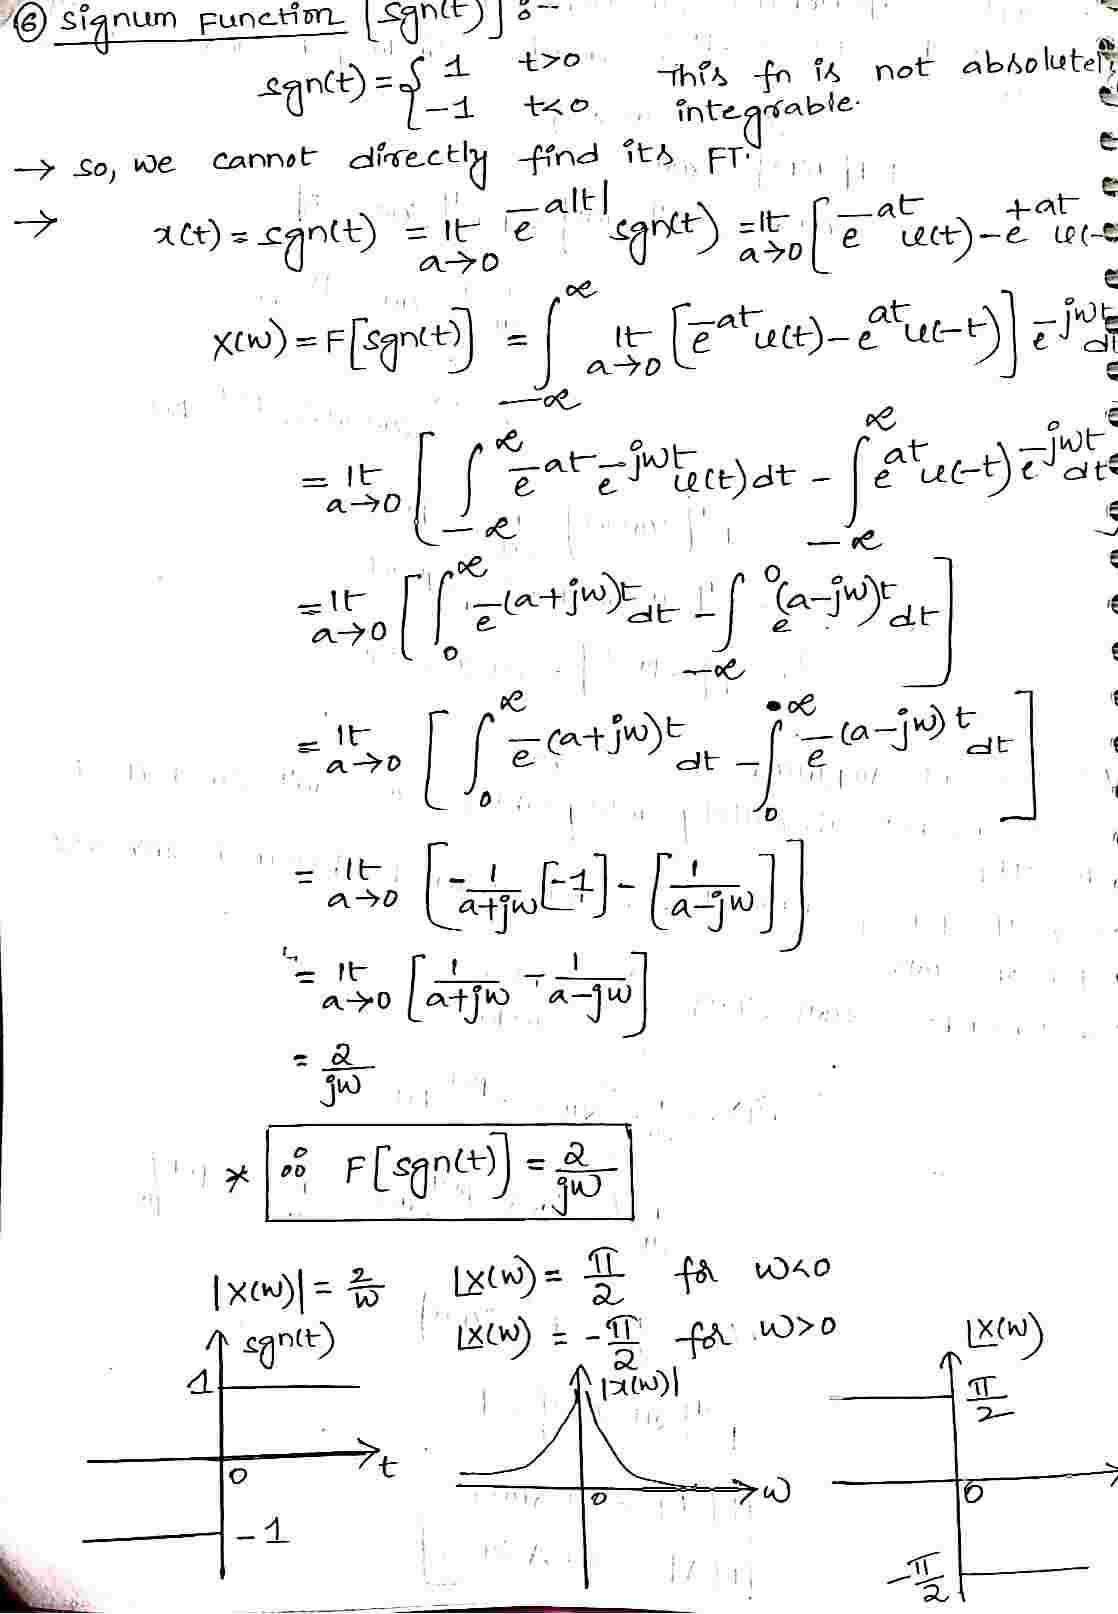 ⑥ Signum Function [sgn(t)] :-
sgn(t) = { 1 t>0 This fn is not absolutely
{ -1 t<0. integrable.
→ So, we cannot directly find its FT.
→ x(t) = sgn(t) = lt a→0 e^-a|t| sgn(t) = lt a→0 [e^-at u(t) - e^+at u(-
X(w) = F[sgn(t)] = ∫_-∞^∞ lt a→0 [e^-at u(t) - e^at u(-t)] e^-jwt dt
= lt a→0 [ ∫_-∞^∞ e^-at e^-jwt u(t) dt - ∫_-∞^∞ e^at u(-t) e^-jwt dt
= lt a→0 [ ∫_0^∞ e^-(a+jw)t dt - ∫_-∞^0 e^(a-jw)t dt ]
= lt a→0 [ ∫_0^∞ e^-(a+jw)t dt - ∫_0^∞ e^-(a-jw)t dt ]
= lt a→0 [ -1/(a+jw) [-1] - [1/(a-jw)] ]
= lt a→0 [ 1/(a+jw) - 1/(a-jw) ]
= 2/jw
* ∴ F[sgn(t)] = 2/jw
|X(w)| = 2/w ∠X(w) = π/2 for w<0
∠X(w) = -π/2 for w>0
sgn(t)
1
0
t
-1
|x(w)|
0
w
∠X(w)
π/2
0
-π/2